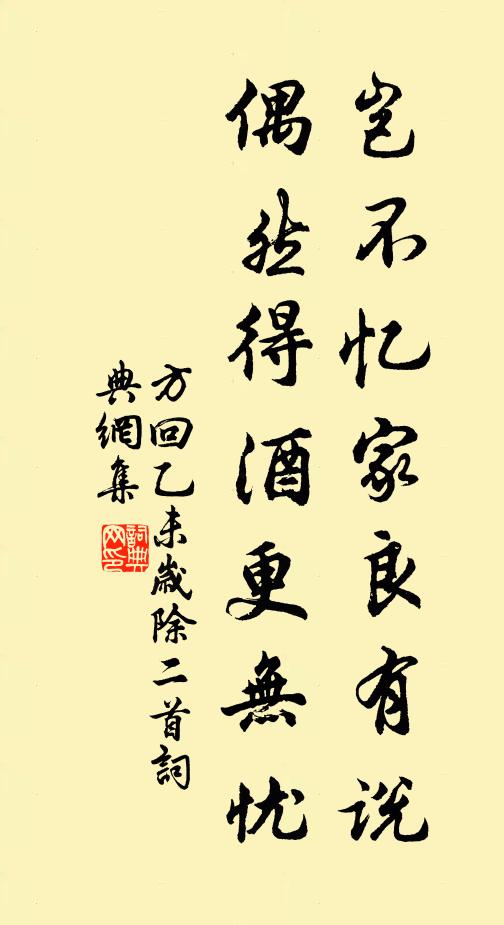 岂不忆家良有说
偶然得酒更無忧
方回乙未歲除二首詞
典網集
詞典网印